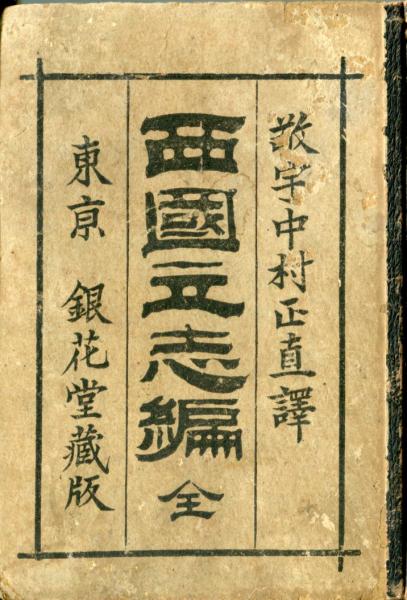 敬宇中村正直譯
西國立志編 全
東亰 銀花堂藏版